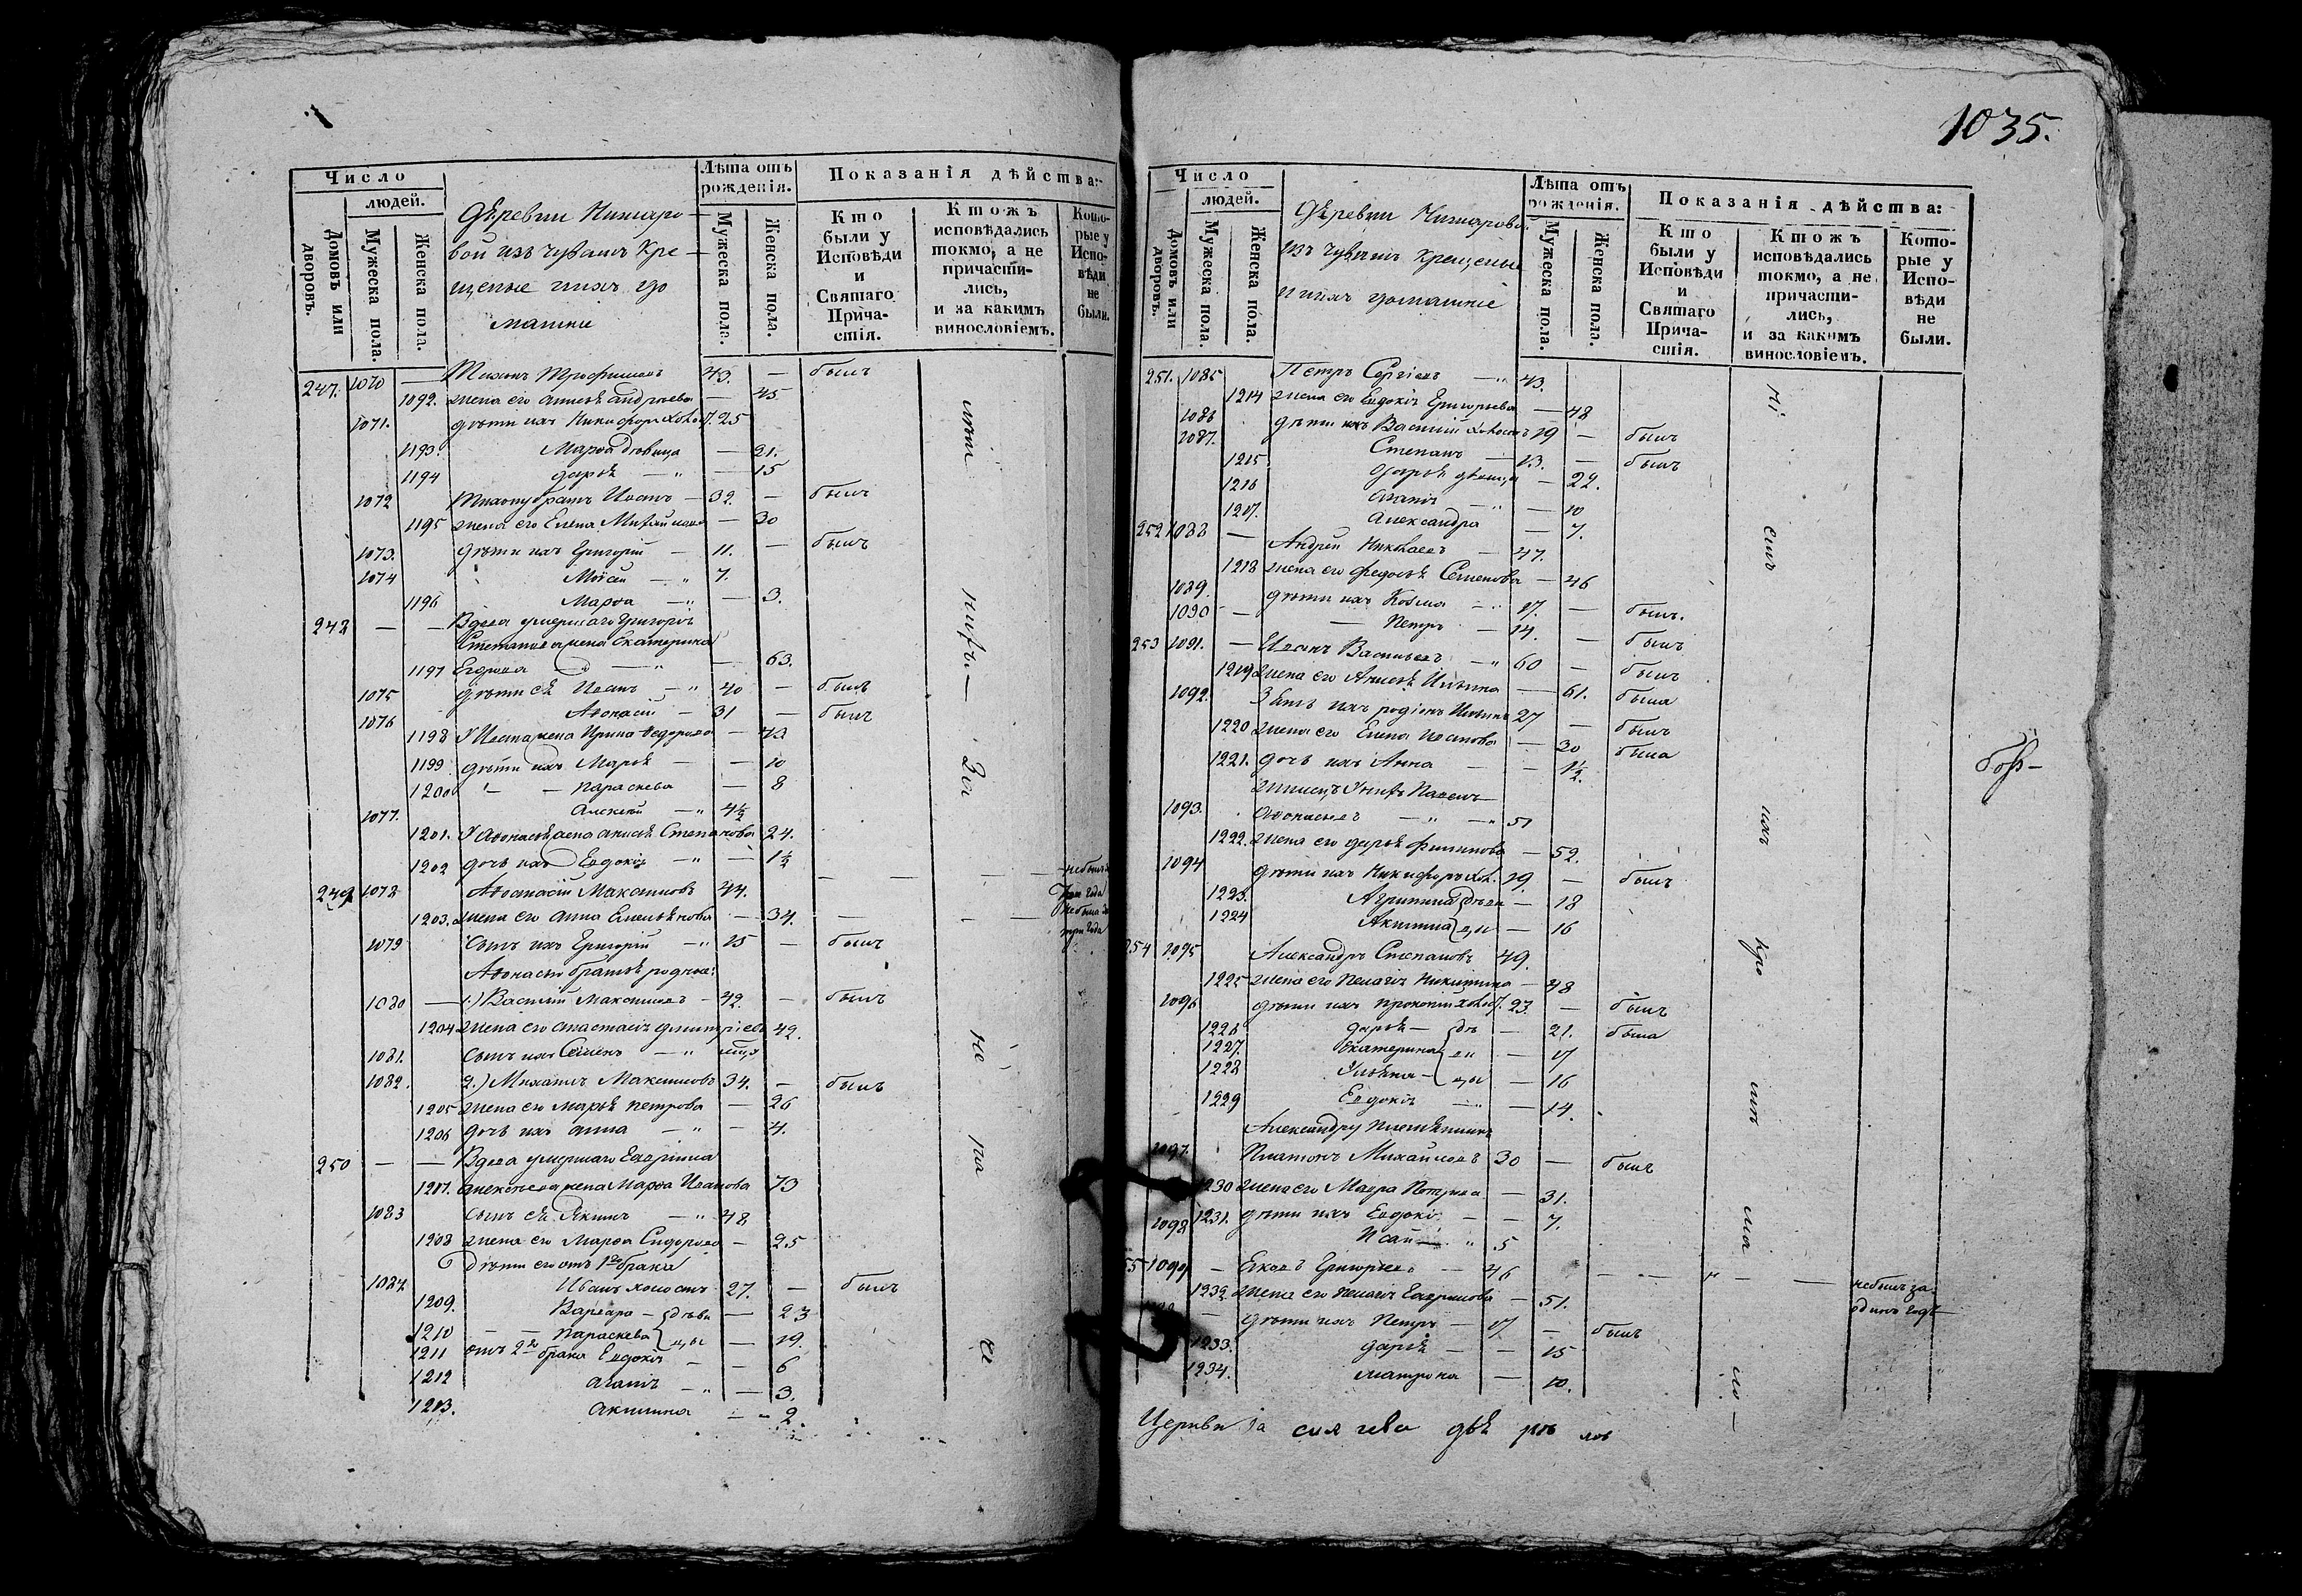 1035.
Число
людей.
Домовъ или дворовъ.
Мужеска пола.
Женска пола.
Деревни Кишаро-
вой изъ чувашъ Кре-
щеные и ихъ до
машніе
Лѣта отъ рожденія.
Мужеска пола.
Женска пола.
Показанія дѣйства:
Кто были у Исповѣди и Святаго Прича-стія.
Ктожъ исповѣдались токмо, а не причасти-лись, и за какимъ винословіемъ.
Кото-рые у Испо-вѣди не были.
247. 1070 — Тихонъ Трофимовъ 43. — былъ
1092. жена его Анисья Андреева — 45
1071. дѣти ихъ Никифоръ холо. 25
1193. Марѳа дѣвица — 21.
1194 Дарья — " — 15
1072 Тихону братъ Иванъ — 32. — былъ
1195 жена его Елена Михайлова — 30
1073. дѣти ихъ Григорій — 11. — былъ
1074 Моисей — " 7.
1196 Марѳа — " — 3.
248 — — Вдова умершаго Григорья
Степанова жена Екатерина
1197 Егорова — " — 63.
1075 дѣти ея Иванъ — " 40 — былъ
1076 Аѳонасій — 31 — былъ
1198 У Ивана жена Ирина Ѳедорова — 43
1199 дѣти ихъ Марья — — 10
1200 — Параскева — 8
1077. Алексѣй — " 4½
1201. У Аѳонасья жена Анисья Степанова 24.
1202 дочь ихъ Евдокія — " — 1½
249 1078 Аѳонасій Максимовъ 44. — — — —
1203. жена его Анна Емельянова — 34. — — —
1079 Сынъ ихъ Григорій — " 15 — былъ
Аѳонасью братья родные:
1080 — 1.) Василій Максимовъ — 42. — былъ
1204 жена его Анастасія Дмитріева 42.
1081. Сынъ ихъ Семенъ — "
1082. 2.) Михаилъ Максимовъ 34. — былъ
1205 жена его Марья Петрова — 26
1206 дочь ихъ Анна — " — 4.
250 — — Вдова умершаго Гаврилы
1207. Алексѣева жена Марѳа Иванова 73
1083 Сынъ ея Якимъ — " 48
1208 жена его Марѳа Сидорова — 25
Дѣти его отъ 1го брака
1084 Иванъ холостъ 27. — былъ
1209. Варвара — дѣви — 23
1210 — — Параскева цы — 19.
1211 отъ 2го брака Евдокія — — 6
1212 Агапія — " — 3.
1213. Акилина — " 2.
Число
людей.
Домовъ или дворовъ.
Мужеска пола.
Женска пола.
Деревни Кишаровой
изъ чувашъ Крещеные
и ихъ домашніе
Лѣта отъ рожденія.
Мужеска пола.
Женска пола.
Показанія дѣйства:
Кто были у Исповѣди и Святаго Прича-стія.
Ктожъ исповѣдались токмо, а не причасти-лись, и за какимъ винословіемъ.
Кото-рые у Испо-вѣди не были.
251. 1085 Петръ Сергѣевъ — " 43.
1214 жена его Евдокія Григорьева — 48
1086 дѣти ихъ Василій холостъ 19 — былъ
1087. Степанъ — 13. — былъ
1215 Дарья дѣвица — 22.
1216 Агапія — " — 10
1217. Александра — 7.
252 1088 — Андрей Николаевъ — 47.
1218 жена его Ѳедосья Семенова — 46
1089. дѣти ихъ Козма — " 17. — былъ.
1090 — — Петръ — 14. — былъ
253 1091. — Иванъ Васильевъ — " 60 — былъ
1219 жена его Анисья Ильина — 61. была
1092. Зять ихъ Родіонъ Ильинъ 27 — былъ
1220 жена его Елена Иванова — 30 была
1221. дочь ихъ Анна — — 1½.
Павелъ
1093. Аѳонасьевъ — " — " 51
1222. жена его Дарья Филипова — 52.
1094 дѣти ихъ Никифоръ хол. 19. — былъ
1223. Агрипина дѣви — 18
1224 Акилина цы — 16
254 1095 Александръ Степановъ 49.
1225 жена его Пелагія Никитина — 48
1096 дѣти ихъ Прокопій холос. 23. — былъ
1226 Дарья — дѣ — 21. была
1227. Екатерина ви — 17
1228 Ульяна — цы — 16
1229 Евдокія — " — 14.
Александру племянникъ
1097. Платонъ Михайловъ 30 — былъ
1230 жена его Мавра Петрова — 31.
1231. дѣти ихъ Евдокія — — 7.
1098 Исай — " 5
55 1099 — Яковъ Григорьевъ — 46 — — — — небылъ за
1232. жена его Пелагія Гаврилова — 51. одинъ годъ
— дѣти ихъ Петръ — 17 — былъ
1233. Дарья — — 15
1234. Матрона — 10.
Церкви